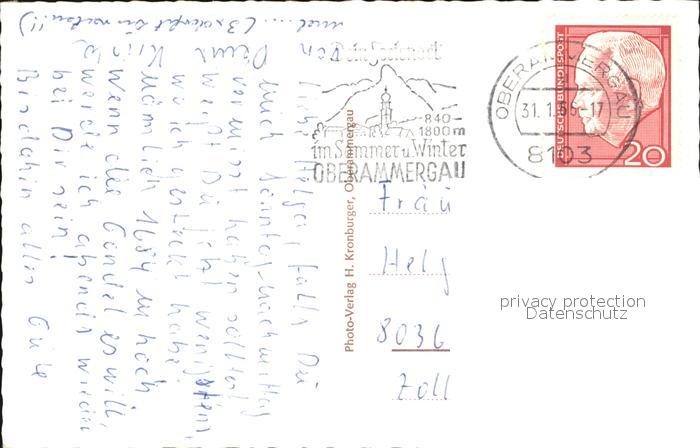 und....
Liebe Helga, falls Du
mich Sonntag-nachmittag
vermisst haben solltest
weißt Du jetzt wenigstens,
wo ich gesteckt habe.
Nämlich 1684 m hoch
Wenn die Gondel es will,
werde ich abends wieder
bei Dir sein!
Bis dahin alles Gute
Dein
Dein Ferienort
840-
1800m
im Sommer u. Winter
OBERAMMERGAU
OBERAMMERGAU
31.1.66-17
8103
DEUTSCHE BUNDESPOST
20
Photo-Verlag H. Kronburger, Oberammergau
Frau
Helg
8036
Zoll
privacy protection
Datenschutz